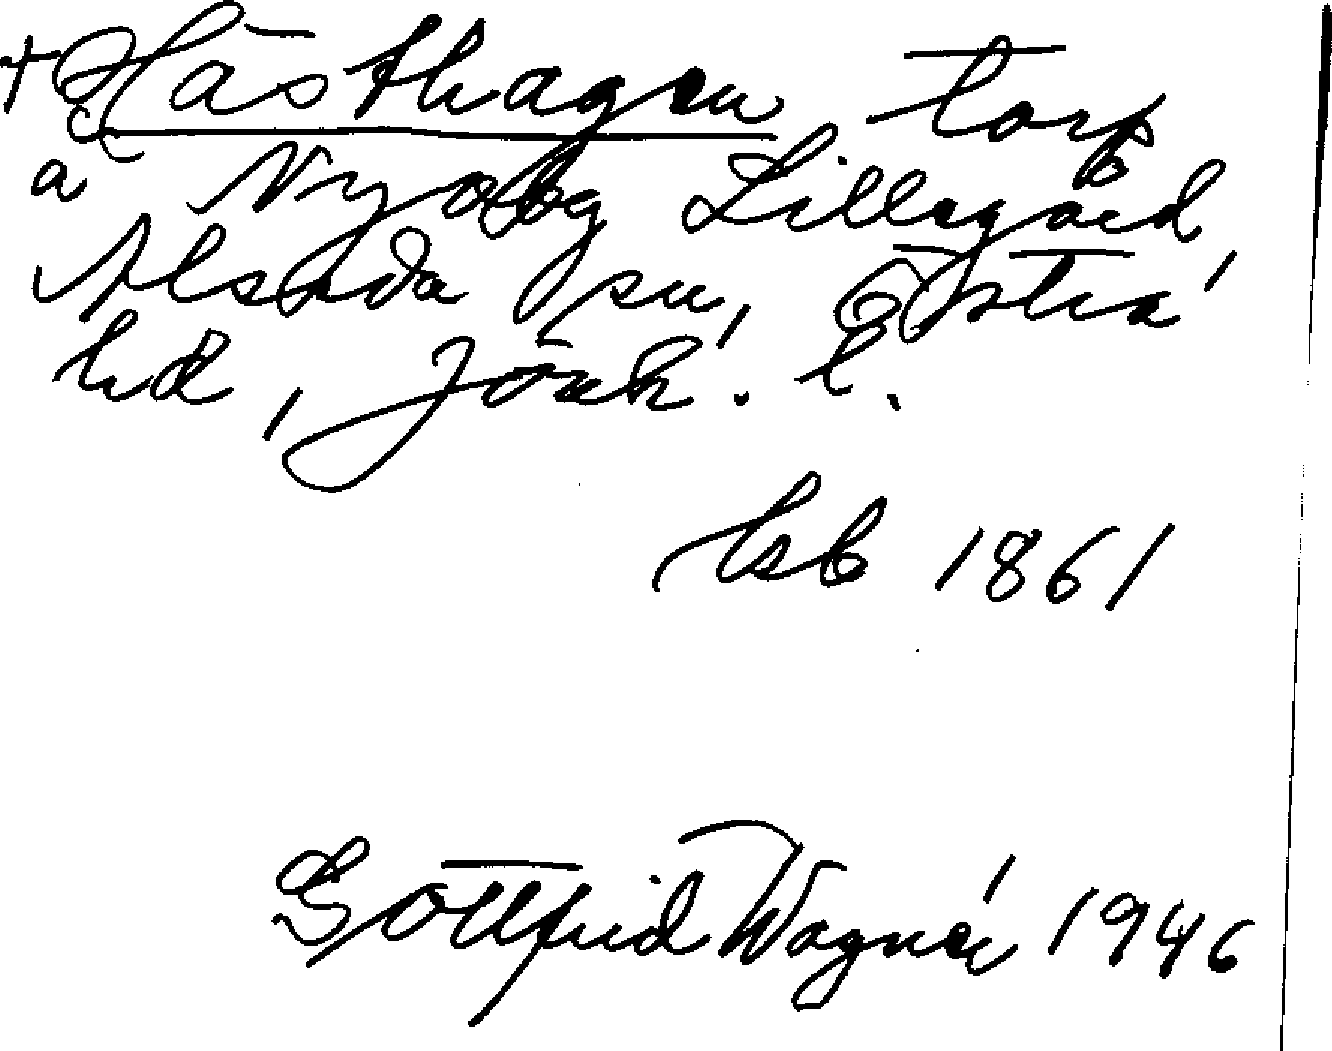 + Hästhagen, torp
å Nyaby Lillegård,
Alseda sn, Östra
hd, Jönk. l.
hsb 1861
Gottfrid Wagnér 1946